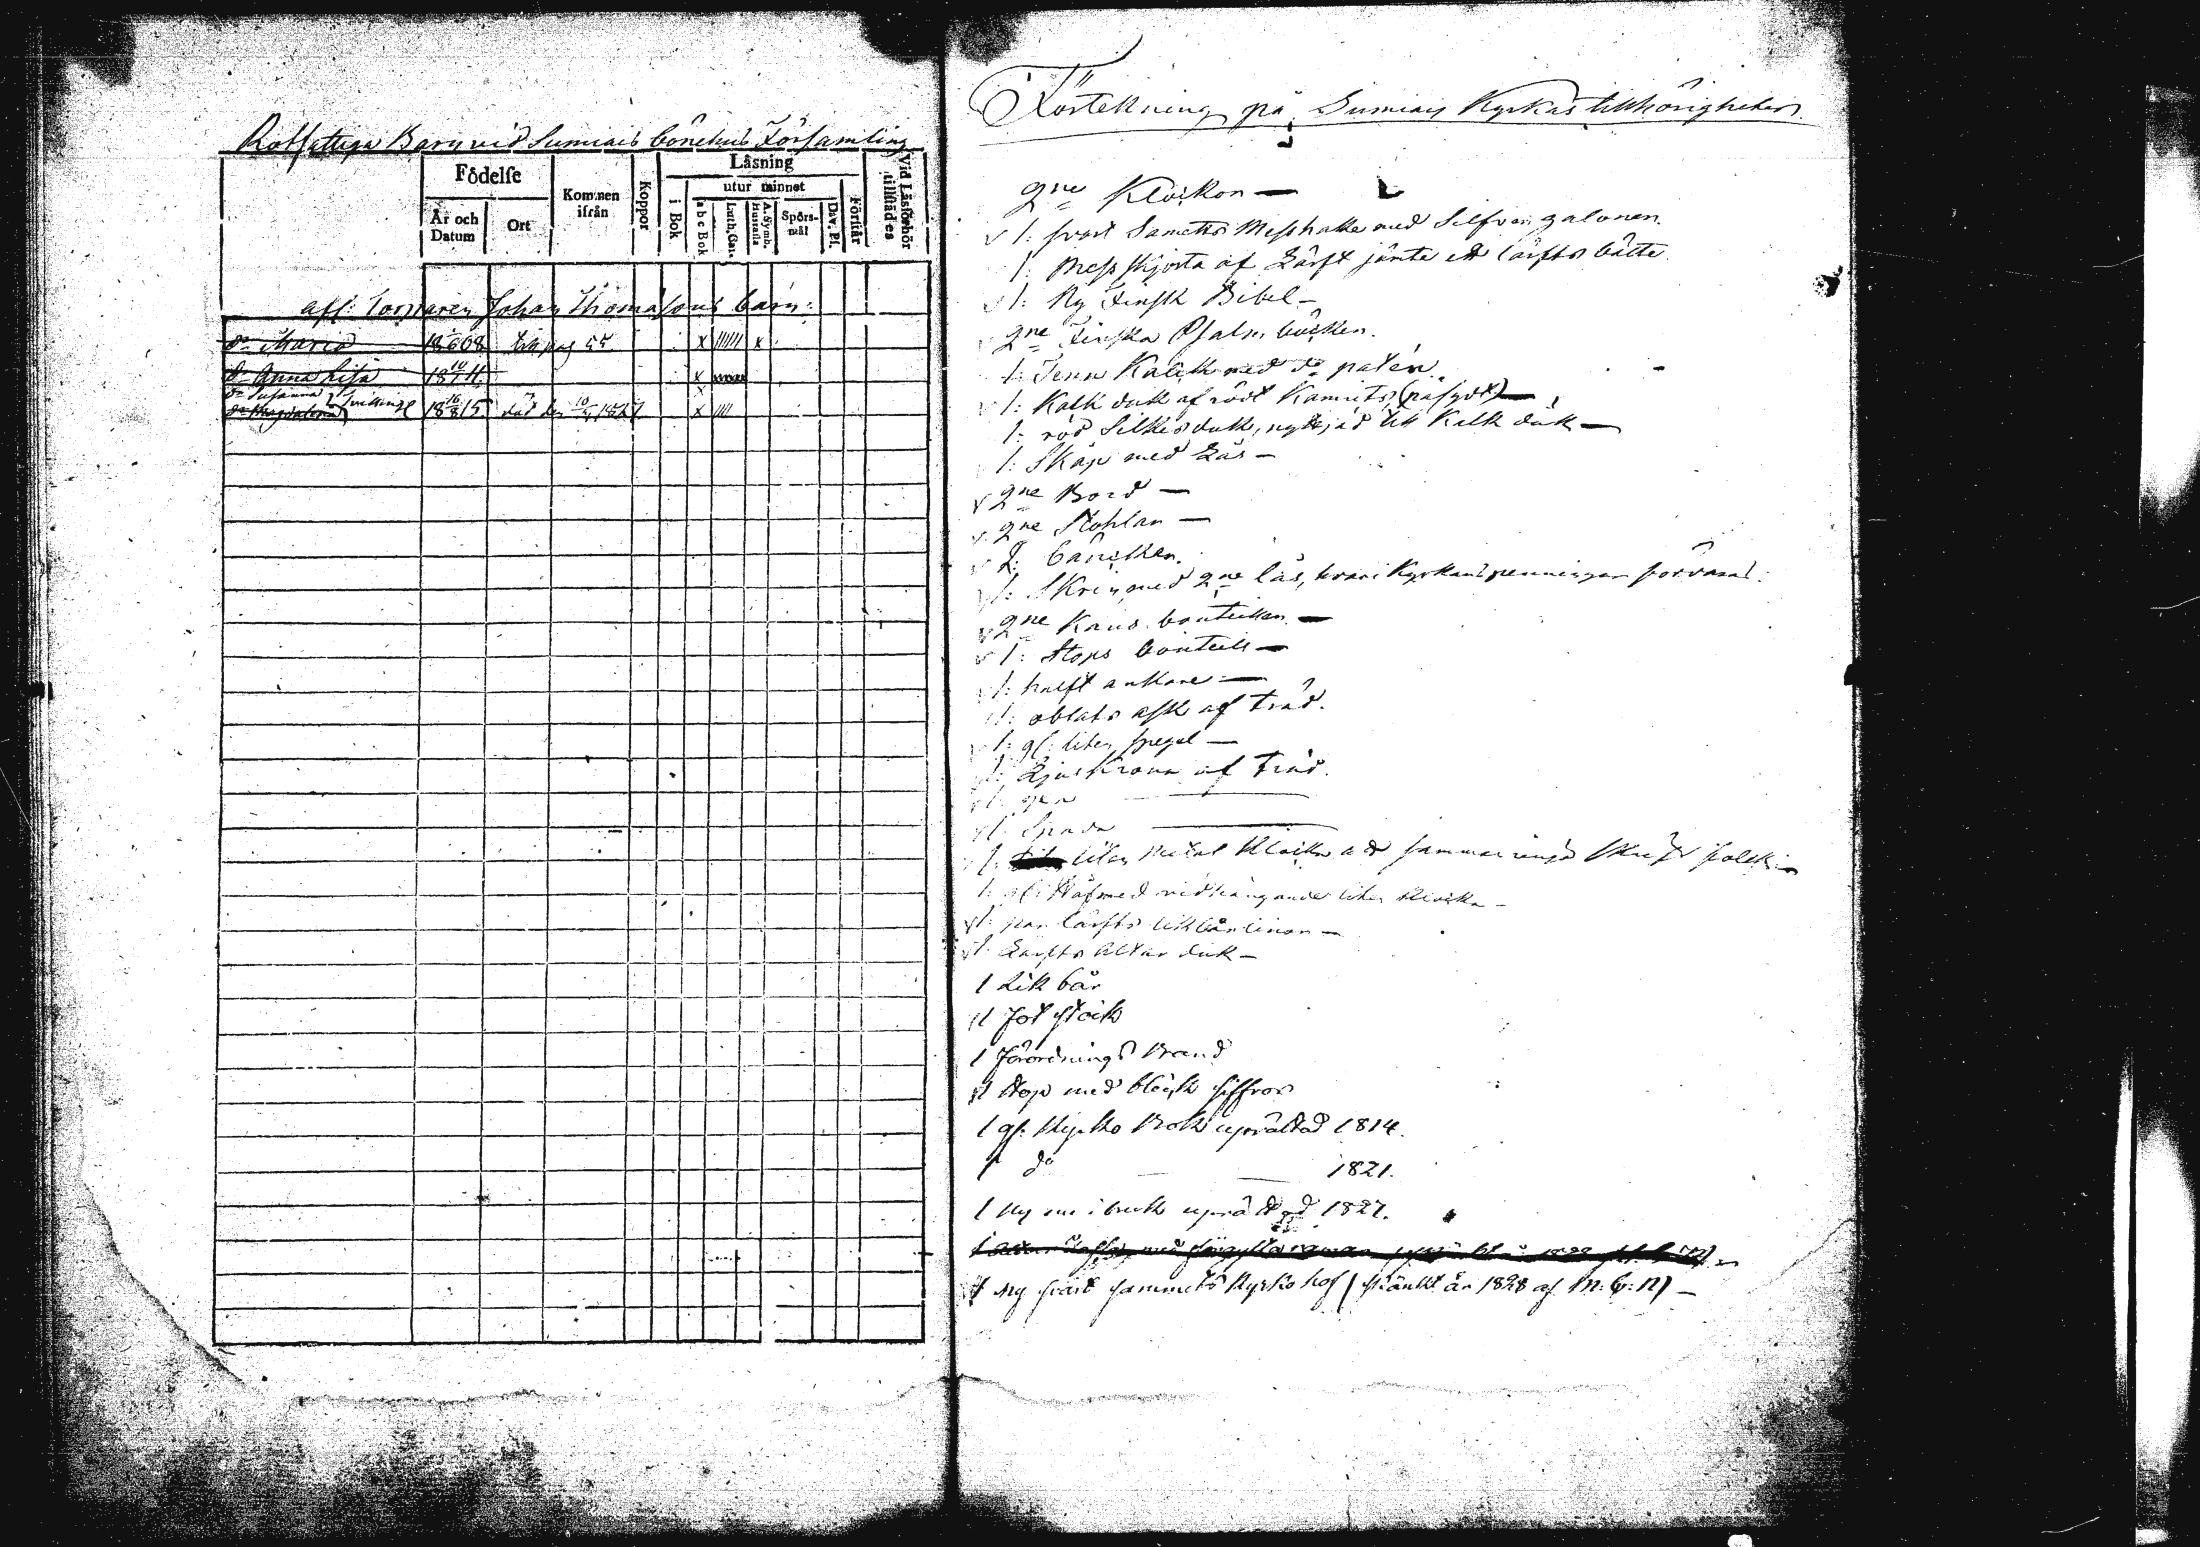 Rotfattiga Barn vid Sumiais bönehus Församling
Födelse
Läsning
Vid Läsförhör tillstädes
År och Datum
Ort
Kommen ifrån
Koppor
i Bok
utur minnet
abc Bok
Luth. Cat.
A. Symb. Hustafla
Spörs-mål
Dav. Ps.
Förstår
afl: Torparen Johan Thomasons barn:
dr Maria 18 08 pag 55 x x
dr Anna Lisa 18 11 x
dr Susanna x
dr Magdalena 18 15 död den 1827 x
Förtekning på Sumiais Kyrkas tillhörigheter
2ne Klockor —
1: svart Sametts Messhake med Silfver galoner.
1: Mess skjorta af Lärft jämte ett lärfts bälte
1: Ny Finsk Bibel —
2ne Finska Psalm böcker.
1: Tenn Kalk med do patén.
1: Kalk duk af rödt (påsydt) —
1: röd Silkes duk, nyttjad till Kalk duk —
1: Skåp med Lås —
2ne Bord —
2ne Stohlar —
2: bäncker.
1: Skrin med 2ne lås, hvari Kyrkans penningar förvaras:
2ne Kaus bouteiller —
1: Stops bouteill —
1: halft ankare —
1: oblats ask af träd.
1: gl: liten spegel —
1: Ljus Krona af träd.
1:
1: Spada
1: liten Metal Klocka
1: gl: Håf med vidhängande liten klocka —
1: par lärfts likbårlinor —
1: Lärfts Altar duk —
1 Lik bår
1 Fot stock
1 Förordnings Band
1 Stop med bläck siffror
1 gl: Kyrko Bok uprättad 1814.
1 do — — 1821.
1 ny i bruk uprättad 1827.
1 ny svart sammets Kyrko hof (skänkt år 1828 af M: G: N) —